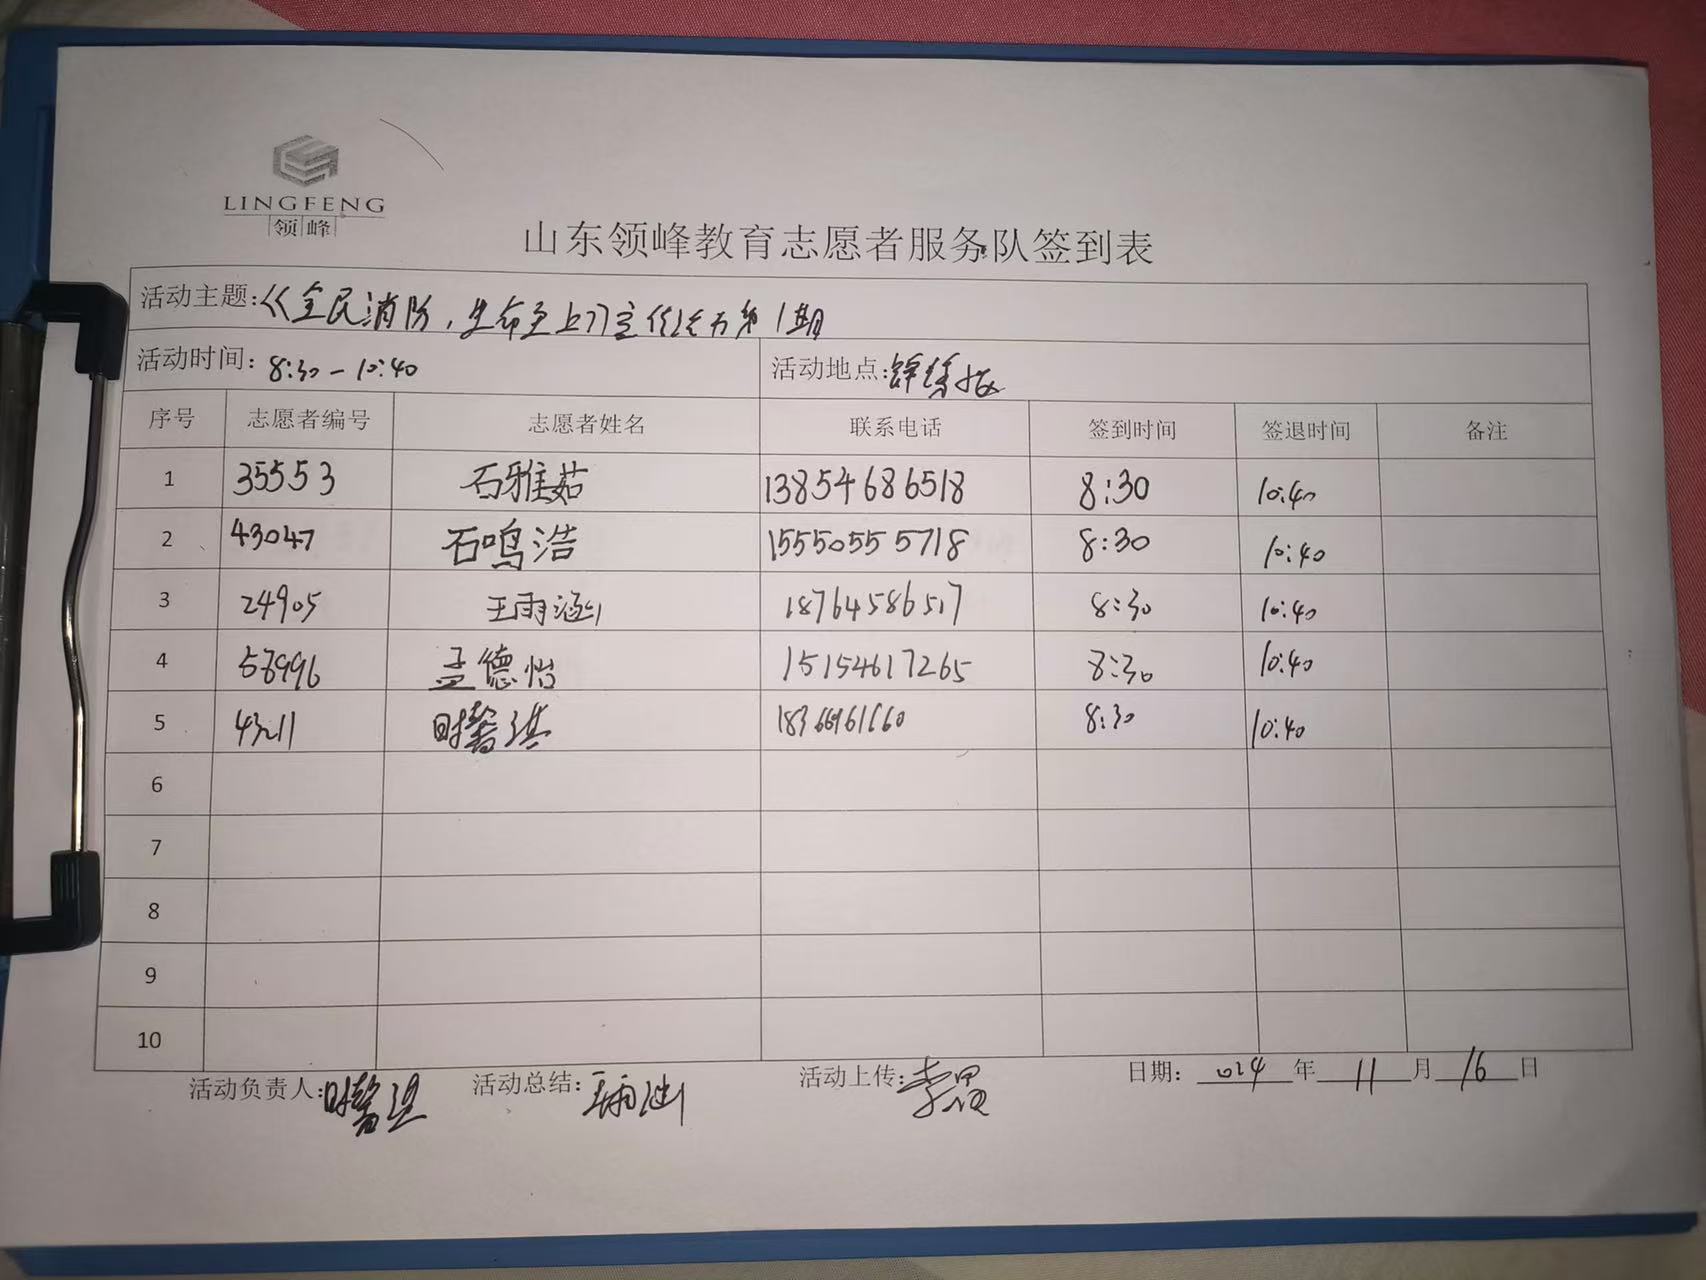 LINGFENG
领峰
山东领峰教育志愿者服务队签到表
活动主题:《全民消防,生命至上》宣传活动第1期
活动时间: 8:30-10:40 活动地点:
序号 志愿者编号 志愿者姓名 联系电话 签到时间 签退时间 备注
1 35553 石雅茹 13854686518 8:30 10:40
2 43047 石鸣浩 15550555718 8:30 10:40
3 24905 王雨涵 18764586517 8:30 10:40
4 58996 孟德怡 15154617265 8:30 10:40
5 时馨淇 18366961660 8:30 10:40
6
7
8
9
10
活动负责人:时馨淇 活动总结:王雨涵 活动上传: 日期: 2024 年 11 月 16 日